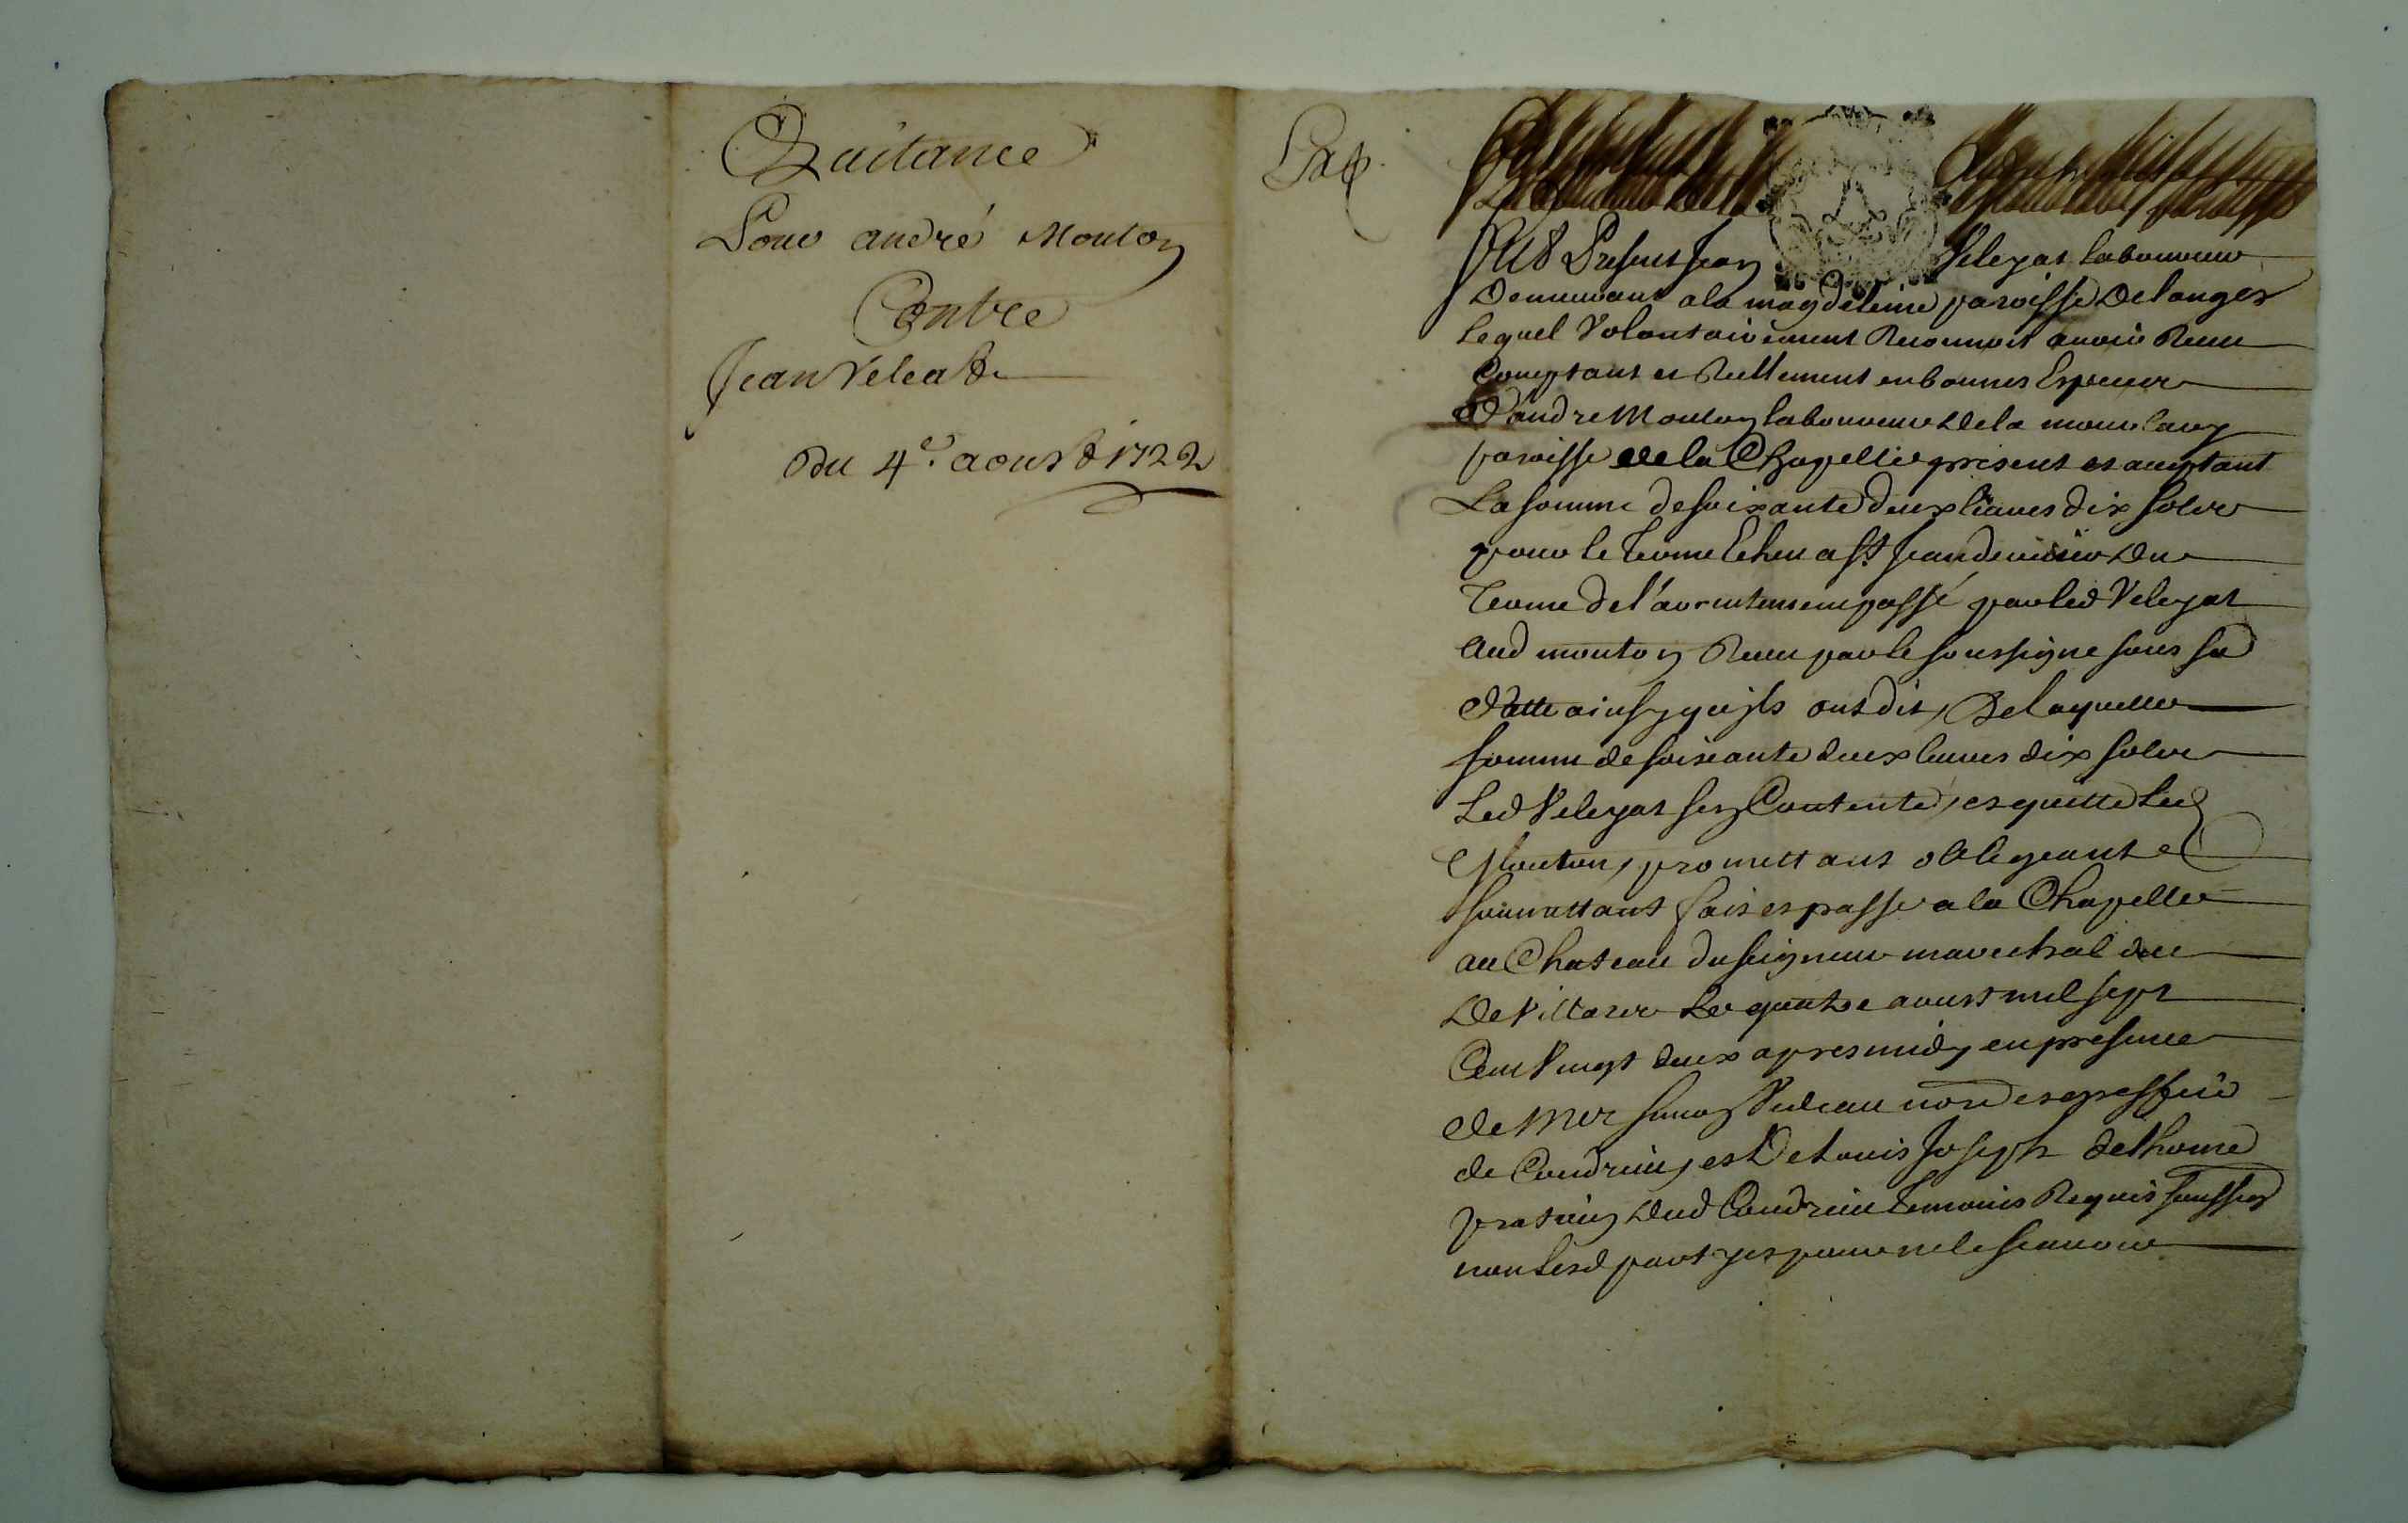 Quitance
Pour andré Mouton
Contre
Jean Veleat
Du 4e. aoust 1722
fut Present Jean Veleyat laboureur
Demeurant a la magdeleine paroisse De longes
Lequel Volontairement Reconnoit auoir Receu
Comptant et Reellement en bonnes Especes
D'andre Mouton laboureur De la
paroisse de la Chapelle present et aceptant
La somme de soixante deux liures dix solz
pour le Terme Echeu a st Jean dernier Du
Terme de l' passé par led Veleyat
Aud mouton Receu par le soussigne sous sa
Datte ainsy qu'jls ont dit, De laquelle
somme de soixante deux liures dix solz
Led Veleyat sez Contente, et quitte Led
Mouton, promettant obligeant et
soumettant fait et passé a la Chapelle
au Chateau du seigneur marechal duc
De Villars Le quatre aoust mil sept
Cent Vingt deux apres midy en presence
de Mre nore et greffier
de Condrieu, et De Louis Joseph delhome
praticien Dud Condrieu temoins Requis soussig
non Lesd partyes pour ne le scauoir